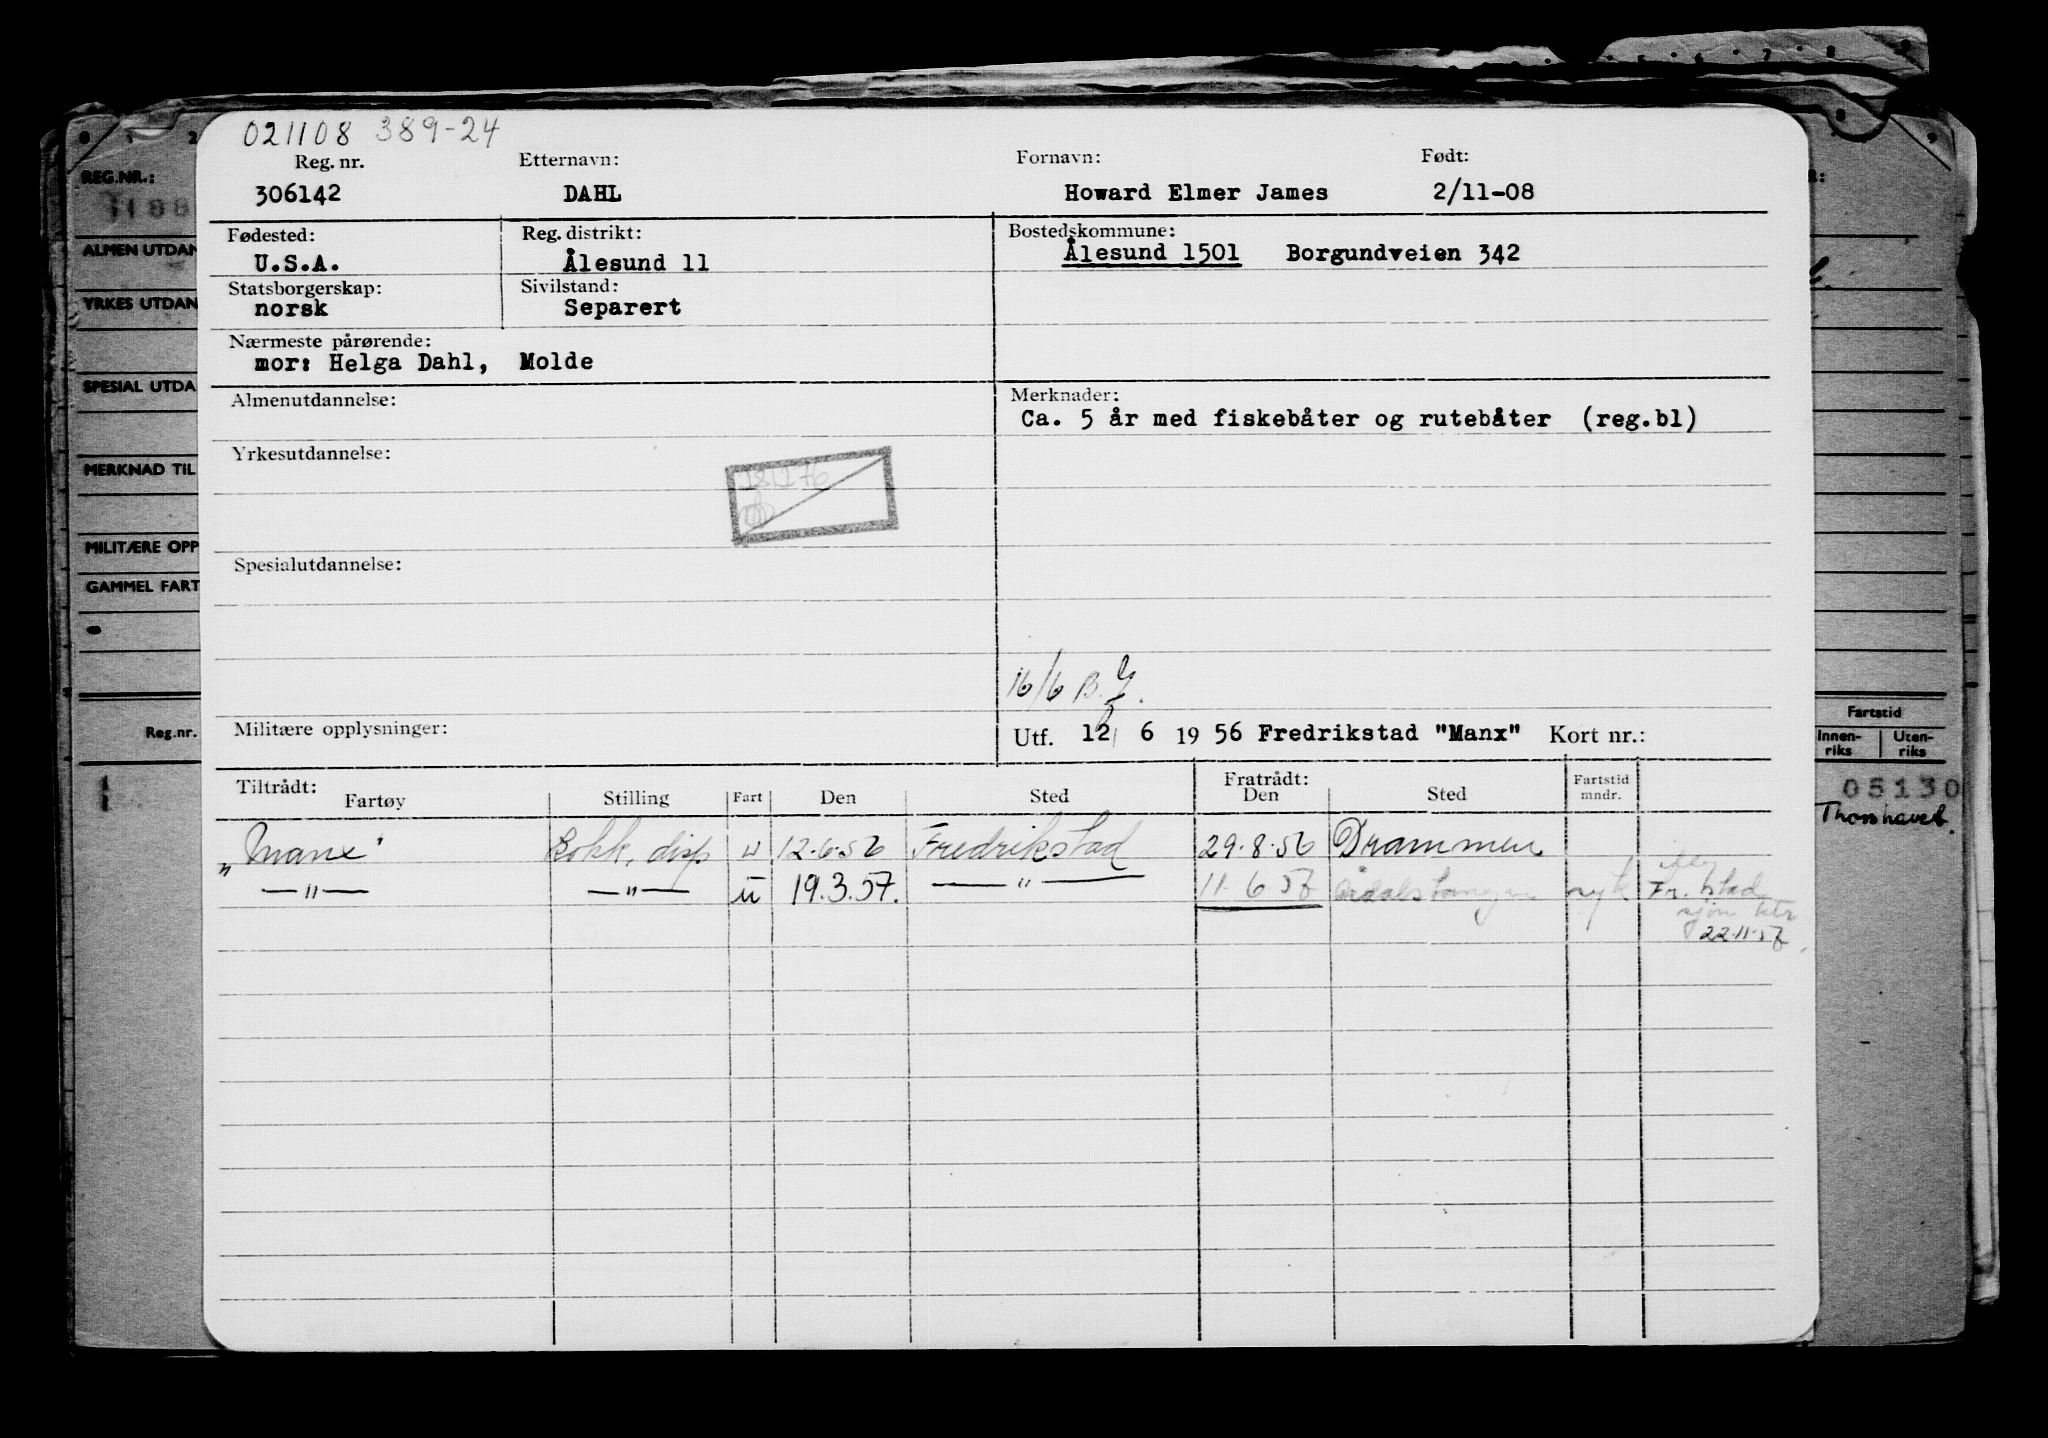 021108 389-24
Reg. nr. Etternavn: Fornavn: Født:
306142 DAHL Howard Elmer James 2/11-08
Fødested: Reg. distrikt: Bostedskommune:
U.S.A. Ålesund 11 Ålesund 1501 Borgundveien 342
Statsborgerskap: Sivilstand:
norsk Separert
Nærmeste pårørende:
mor: Helga Dahl, Molde
Almenutdannelse: Merknader:
Ca. 5 år med fiskebåter og rutebåter (reg.bl)
Yrkesutdannelse:
Spesialutdannelse:
16/6 B.
Militære opplysninger: Utf. 12/ 6 19 56 Fredrikstad "Manx" Kort nr.:
Tiltrådt: Fratrådt: Fartstid
Fartøy Stilling Fart Den Sted Den Sted mndr.
"Manx" Kokk, disp u 12.6.56 Fredrikstad 29.8.56 Drammen
—"— —"— u 19.3.57. —"— 11.6.57 Årdalstangen syk
Fr.stad
22.11.57
REG.NR.:
ALMEN UTDAN
YRKES UTDAN
SPESIAL UTDA
MERKNAD TIL
MILITÆRE OPP
GAMMEL FART
Reg.nr.
Fartstid
Innen-riks Uten-riks
05130
Thorshavet.